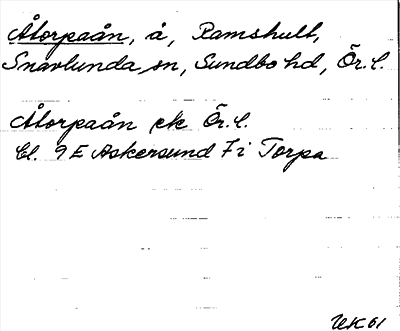 Åtorpaån, å, Ramshult,
Snavlunda sn, Sundbo hd, Ör. l.
Åtorpaån ek Ör. l.
Bl. 9 E Askersund 7 i Torpa
UK 61